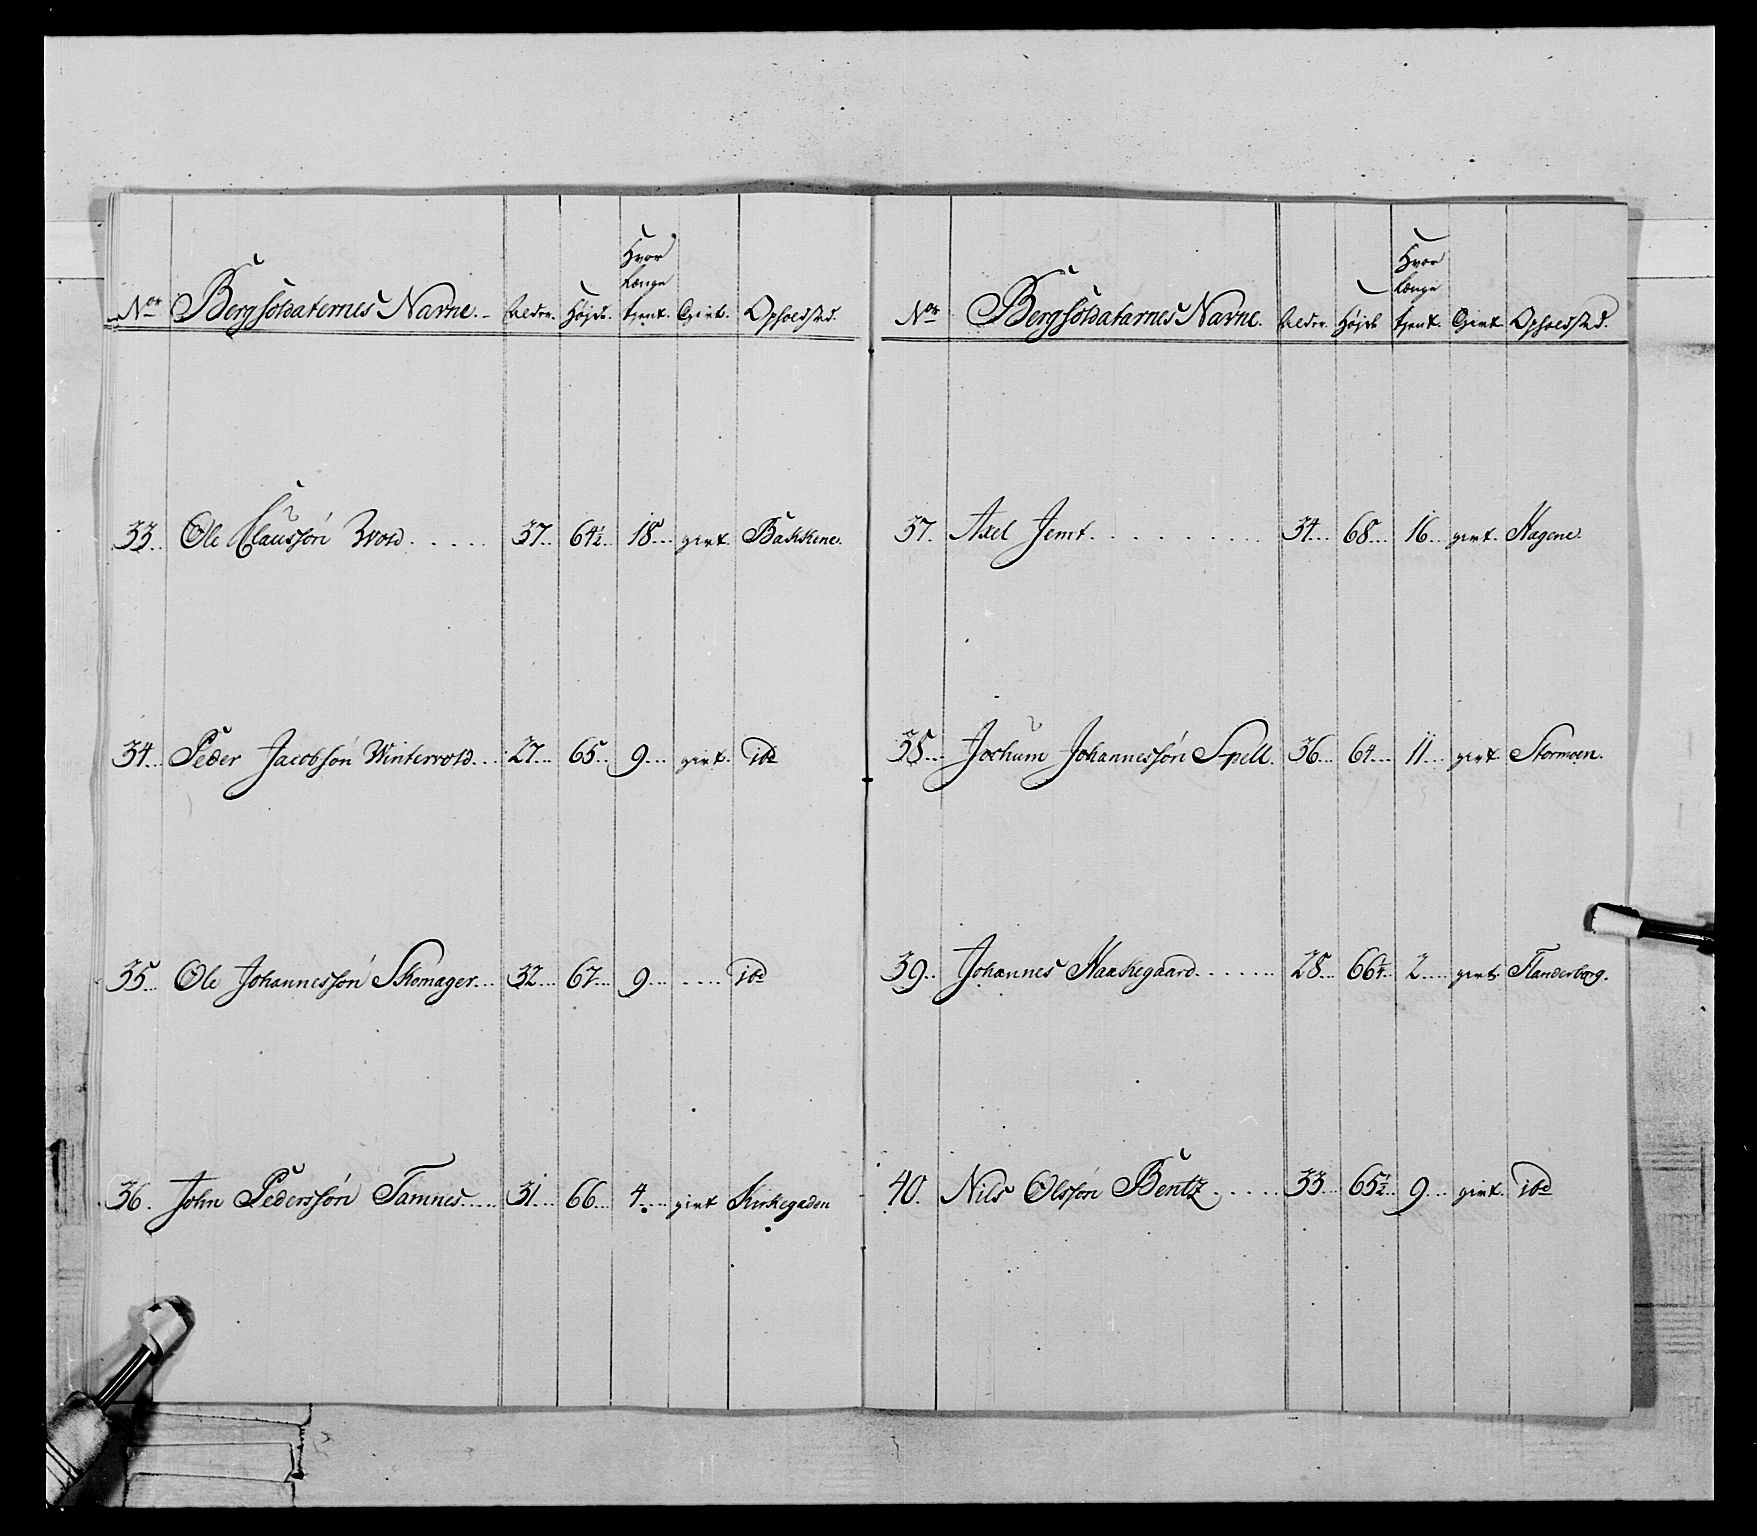 Hvor
længe
No. Bergsoldaternes Navne. Alder. Højde. tjent. Givt. Opholdsted.
33. Ole Claussøn Wold ..... 37 .. 64½ .. 18 ... givt. Bakkene.
34 .. Peder Jacobsøn Wintervold ... 27 ... 65 .. 9 ... givt. ibd
35 ... Ole Johannessøn Skomager ... 32 ... 67 ... 9 ... ..... ibd
36. John Pederssøn Tamnes ..... 31 ... 66 ... 4 .... givt Kirkegaden
Hvor
længe
No. Bergsoldatarnes Navne. Alder. Højde tjent. Givt Opholdsted.
37. Axel Jemt .......... 34 ... 68 ... 16 ... givt. Hagene.
38 ... Jochum Johannessøn Spell. 36 ... 64 .... 11 .... givt. Stormoen.
39 .. Johannes Haakegaard ....... 28 ... 66¼ .. 2 .... givt Flanderborg.
40. Nils Olssøn Bentz ...... 33 ... 65½ .. 9 ... givt. ibd